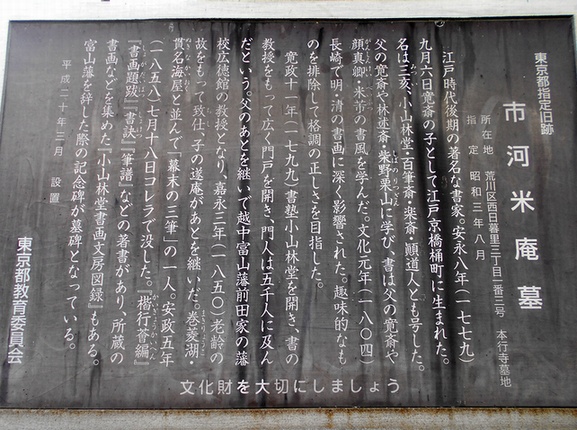 東京都指定旧跡
市河米庵墓
所在地 荒川区西日暮里三丁目一番三号 本行寺墓地
指定 昭和三年八月
江戸時代後期の著名な書家。安永八年(一七七九)
九月六日寛斎の子として江戸京橋桶町に生まれた。
名は三亥、小山林堂・百筆斎・楽斎・顛道人とも号した。
父の寛斎や林述斎・柴野栗山に学び、書は父の寛斎や
顔真卿・米芾の書風を学んだ。文化元年(一八〇四)
長崎で明・清の書画に深く影響された。趣味的なも
のを排除して格調の正しさを目指した。
寛政十一年(一七九九)書塾小山林堂を開き、書の
教授をもって広く門戸を開き、門人は五千人に及ん
だという。父のあとを継いで越中富山藩前田家の藩
校広徳館の教授となり、嘉永三年(一八五〇)老齢の
故をもって致仕、子の遂庵があとを継いだ。巻菱湖・
貫名海屋と並んで「幕末の三筆」の一人。安政五年
(一八五八)七月十八日コレラで没した。『楷行薈編』
『書画題跋』『書訣』『筆譜』などの著書があり、所蔵の
書画などを集めた『小山林堂書画文房図録』もある。
富山藩を辞した際の記念碑が墓碑となっている。
平成二十年三月 設置
東京都教育委員会
文化財を大切にしましょう